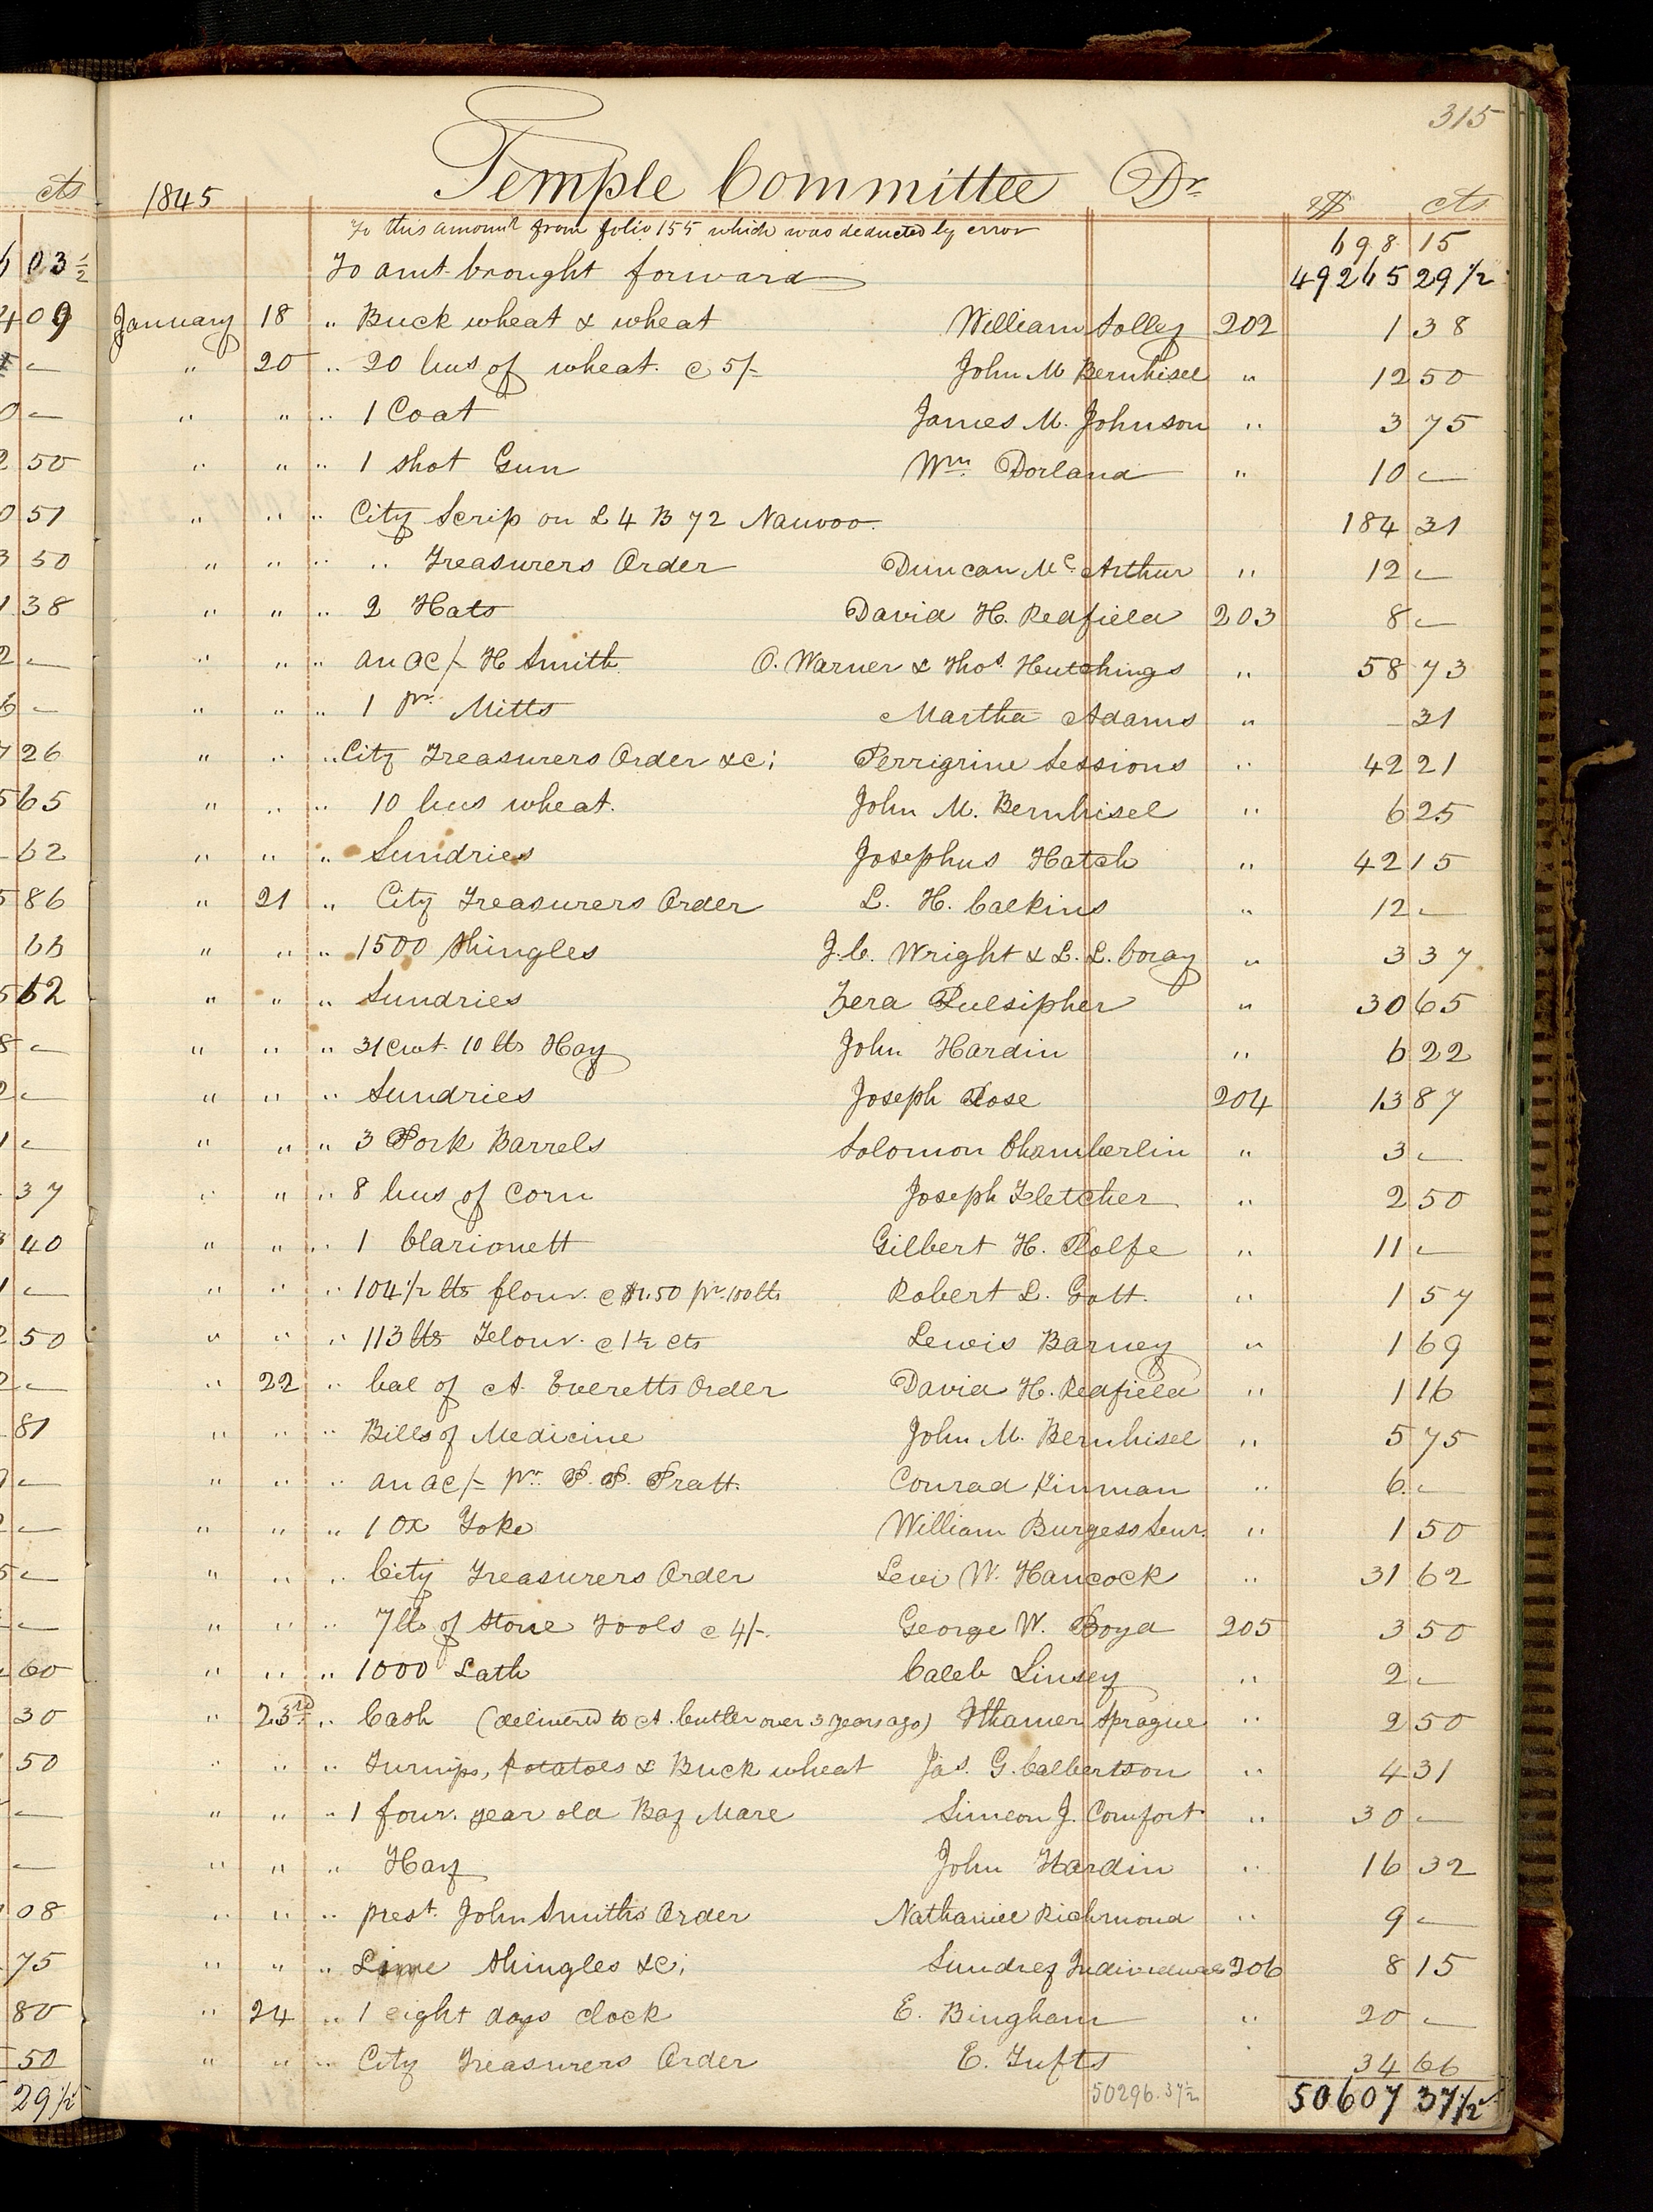 315
Temple Committee Dr
1845 $ cts
To this amount from folio 155 which was deducted by error 698 15
To amt. brought forward 49265 29 1/2
January 18 " Buck wheat & wheat William Solley 202 1 38
" 20 " 20 bus of wheat. @ 5/- John M Bernhisel " 12 50
" " " 1 Coat James M. Johnson " 3 75
" " " 1 shot Gun Wm. Dorland " 10 —
" " " City Scrip on L 4 B 72 Nauvoo. 184 31
" " " " Treasurers Order Duncan Mc Arthur " 12 —
" " " 2 Hats David H. Redfield 203 8 —
" " " an ac/- H Smith O. Warner & Thos. Hutchings " 58 73
" " " 1 pr. Mitts Martha Adams " — 31
" " " City Treasurers Order &c; Perrigrine Sessions " 42 21
" " " 10 bus wheat. John M. Bernhisel " 6 25
" " " Sundries Josephus Hatch " 42 15
" 21 " City Treasurers Order L. H. Calkins " 12 —
" " " 1500 Shingles J. C. Wright & L. L. Coray " 3 37
" " " Sundries Zera Pulsipher " 30 65
" " " 31 cwt. 10 lbs Hay John Hardin " 6 22
" " " Sundries Joseph Rose 204 13 87
" " " 3 Pork Barrels Solomon Chamberlin " 3 —
" " " 8 bus of Corn Joseph Fletcher " 2 50
" " " 1 Clarionett Gilbert H. Rolfe " 11 —
" " " 104 1/2 lbs flour. @ $1.50 pr. 100 lbs Robert L. Gott. " 1 57
" " " 113 lbs Flour. @ 1 1/2 cts Lewis Barney " 1 69
" 22 " bal of A. Everetts Order David H. Redfield " 1 16
" " " Bills of Medicine John M. Bernhisel " 5 75
" " " an ac/- pr. P. P. Pratt. Conrad Kinman " 6 —
" " " 1 Ox Yoke William Burgess Senr. " 1 50
" " " City Treasurers Order Levi W. Hancock " 31 62
" " " 7 lb of Stone Tools @ 4/-. George W. Boyd 205 3 50
" " " 1000 Lath Caleb Linsey " 2 —
" 23rd " Cash (delivered to A. Cutler over 3 years ago) Ithamer Sprague " 2 50
" " " Turnips, Potatoes & Buck wheat Jas. G. Calbertson " 4 31
" " " 1 four. year old Bay Mare Simeon J. Comfort " 30 —
" " " Hay John Hardin " 16 32
" " " prest. John Smiths Order Nathaniel Richmond " 9 —
" " " Lime Shingles &c; Sundrey Individuals 206 8 15
" 24 " 1 eight days clock E. Bingham " 20 —
" " " City Treasurers Order E. Tufts " 34 66
50296.37 1/2 50607 37 1/2
cts
03 1/2
09
—
—
50
51
50
38
—
—
26
65
62
86
62
—
—
—
37
40
—
50
—
81
—
—
—
—
60
30
50
—
—
08
75
80
50
29 1/2